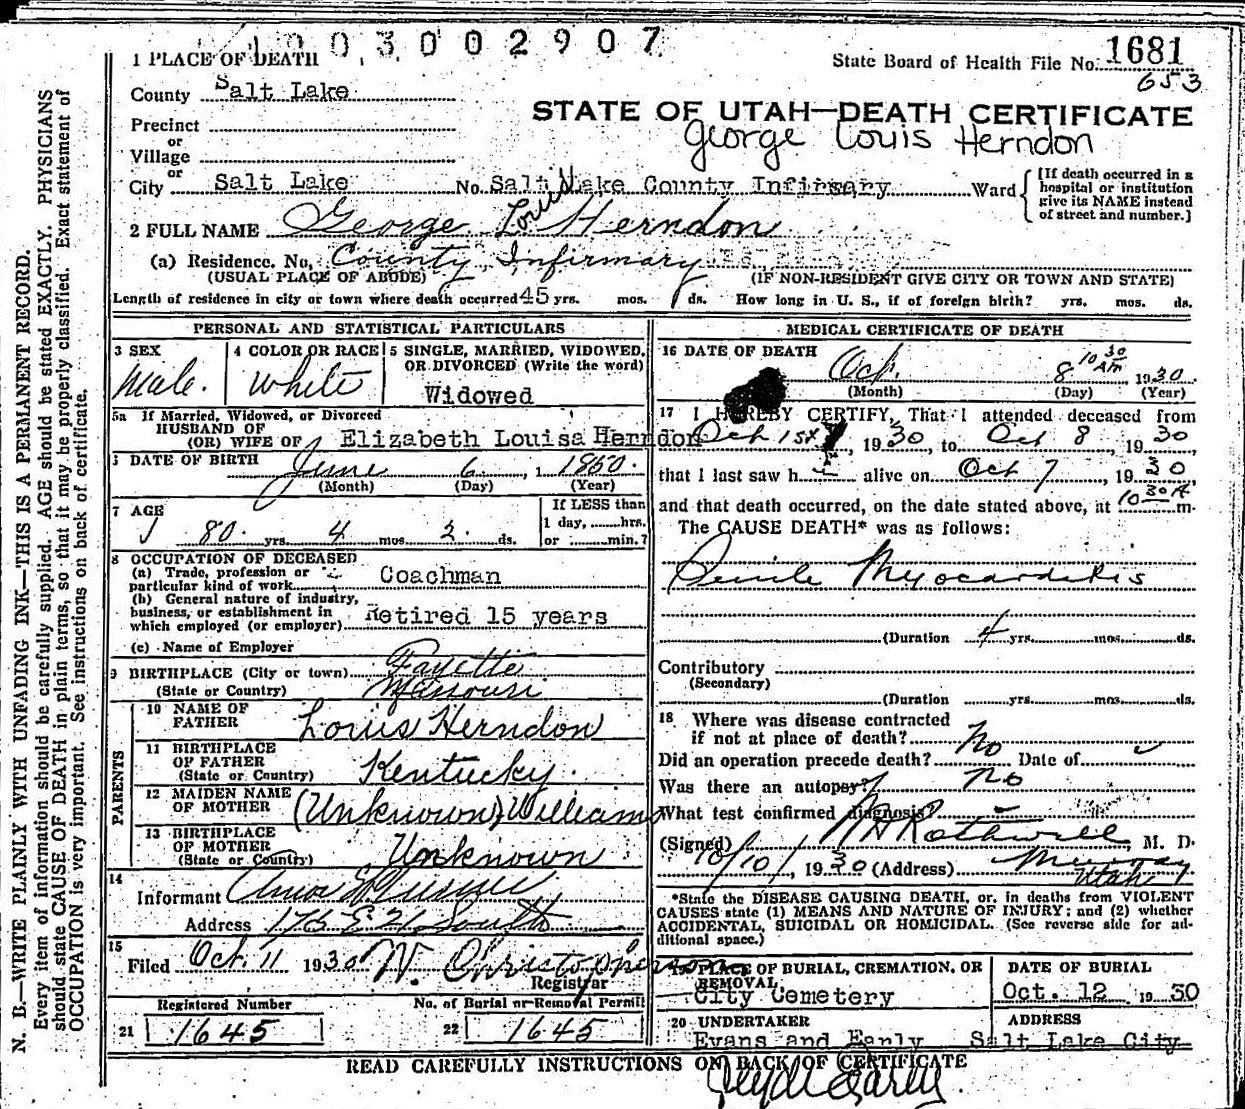 1003002907
1 PLACE OF DEATH
State Board of Health File No. 1681
653
County Salt Lake
STATE OF UTAH—DEATH CERTIFICATE
Precinct
George Louis Herndon
or
Village
or
City Salt Lake No. Salt Lake County Infirmary Ward
[If death occurred in a hospital or institution give its NAME instead of street and number.]
2 FULL NAME George Louis Herndon
(a) Residence. No. County Infirmary
(USUAL PLACE OF ABODE) (IF NON-RESIDENT GIVE CITY OR TOWN AND STATE)
Length of residence in city or town where death occurred 45 yrs. mos. ds. How long in U. S., if of foreign birth? yrs. mos. ds.
PERSONAL AND STATISTICAL PARTICULARS
3 SEX
Male.
4 COLOR OR RACE
White
5 SINGLE, MARRIED, WIDOWED,
OR DIVORCED (Write the word)
Widowed
5a If Married, Widowed, or Divorced
HUSBAND OF
(OR) WIFE OF Elizabeth Louisa Herndon
DATE OF BIRTH June 6 1850.
(Month) (Day) (Year)
7 AGE
80 yrs. 4 mos 2 ds.
If LESS than
1 day, hrs.
or min.?
8 OCCUPATION OF DECEASED
(a) Trade, profession or
particular kind of work Coachman
(b) General nature of industry,
business, or establishment in
which employed (or employer) Retired 15 years
(c) Name of Employer
9 BIRTHPLACE (City or town) Fayette
(State or Country) Missouri
PARENTS
10 NAME OF
FATHER Louis Herndon
11 BIRTHPLACE
OF FATHER
(State or Country) Kentucky.
12 MAIDEN NAME
OF MOTHER (Unknown) Williams
13 BIRTHPLACE
OF MOTHER
(State or Country) Unknown
14
Informant
Address E 21 South
15
Filed Oct. 11 1930 W Christopherson
Registrar
Registered Number
21 1645
No. of Burial or Removal Permit
22 1645
MEDICAL CERTIFICATE OF DEATH
16 DATE OF DEATH Oct. 8 10 30 AM 1930
(Month) (Day) (Year)
17 I HEREBY CERTIFY, That I attended deceased from
Oct 1st, 1930, to Oct 8, 1930,
that I last saw h alive on Oct 7, 1930,
and that death occurred, on the date stated above, at 10 30 A m.
The CAUSE DEATH* was as follows:
Senile Myocarditis
(Duration 4 yrs. mos. ds.
Contributory
(Secondary)
(Duration yrs. mos. ds.
18 Where was disease contracted
if not at place of death?
Did an operation precede death? No Date of
Was there an autopsy? No
What test confirmed diagnosis?
(Signed) Rothwell, M. D.
10/10/, 1930 (Address) Murray
Utah
*State the DISEASE CAUSING DEATH, or, in deaths from VIOLENT
CAUSES state (1) MEANS AND NATURE OF INJURY; and (2) whether
ACCIDENTAL, SUICIDAL OR HOMICIDAL. (See reverse side for ad-
ditional space.)
19 PLACE OF BURIAL, CREMATION, OR
REMOVAL
City Cemetery
DATE OF BURIAL
Oct. 12 1930
20 UNDERTAKER
Evans and Early
ADDRESS
Salt Lake City
READ CAREFULLY INSTRUCTIONS ON BACK OF CERTIFICATE
Early
N. B.—WRITE PLAINLY WITH UNFADING INK—THIS IS A PERMANENT RECORD.
Every item of information should be carefully supplied. AGE should be stated EXACTLY. PHYSICIANS
should state CAUSE OF DEATH in plain terms, so that it may be properly classified. Exact statement of
OCCUPATION is very important. See instructions on back of certificate.